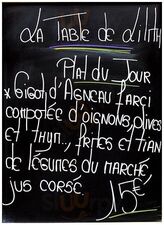 La Table de Lilith
Plat du Jour
x Gigot d'Agneau farci
compotée d'oignons, olives
et thym, frites et tian
de légumes du marché,
jus corsé.
15€